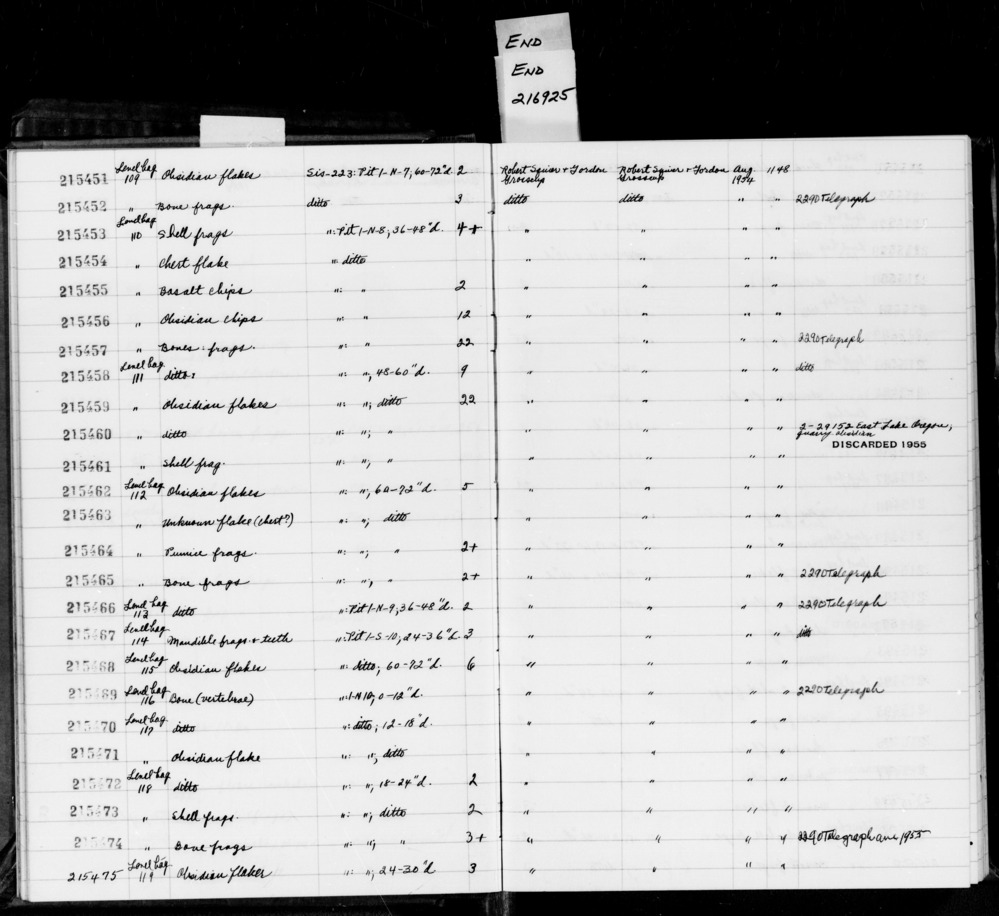 END
END
216925
215451 Level bag 109 Obsidian flakes Sis-223: Pit 1-N-7; 60-72"d. 2 Robert Squier + Gordon Grosscup Robert Squier + Gordon Grosscup Aug 1954 1148
215452 " Bone frags. ditto 3 ditto ditto " " 2290 Telegraph
215453 Level bag 110 Shell frags ": Pit 1-N-8; 36-48"d. 4+ " " " "
215454 " Chert flake ": ditto " " " "
215455 " Basalt chips ": " 2 " " " "
215456 " Obsidian chips ": " 12 " " " "
215457 " Bones: frags. ": " 22 " " " " 2290 Telegraph
215458 Level bag 111 ditto: ": "; 48-60"d. 9 " " " " ditto
215459 " Obsidian flakes ": "; ditto 22 " " " "
215460 " ditto ": "; " " " " " 2-29152 East Lake Oregon; quarry obsidian
DISCARDED 1955
215461 " Shell frag. ": "; " " " " "
215462 Level bag 112 Obsidian flakes ": "; 60-72"d. 5 " " " "
215463 " Unknown flake (chert?) ": "; ditto " " " "
215464 " Pumice frags. ": "; " 2+ " " " "
215465 " Bone frags ": "; " 2+ " " " " 2290 Telegraph
215466 Level bag 113 ditto ": Pit 1-N-9; 36-48"d. 2 " " " " 2290 Telegraph
215467 Level bag 114 Mandible frags. + teeth ": Pit 1-S-10; 24-36"d. 3 " " " " ditto
215468 Level bag 115 Obsidian flakes ": ditto; 60-72"d. 6 " " " "
215469 Level bag 116 Bone (vertebrae) ": 1-N 10; 0-12"d. " " " " 2290 Telegraph
215470 Level bag 117 ditto ": ditto; 12-18"d. " " " "
215471 " Obsidian flake ": "; ditto " " " "
215472 Level bag 118 ditto ": "; 18-24"d. 2 " " " "
215473 " Shell frags. ": "; ditto 2 " " " "
215474 " Bone frags ": "; " 3+ " " " " 2290 Telegraph ave, 1955
215475 Level bag 119 Obsidian flakes ": "; 24-30"d 3 " " " "